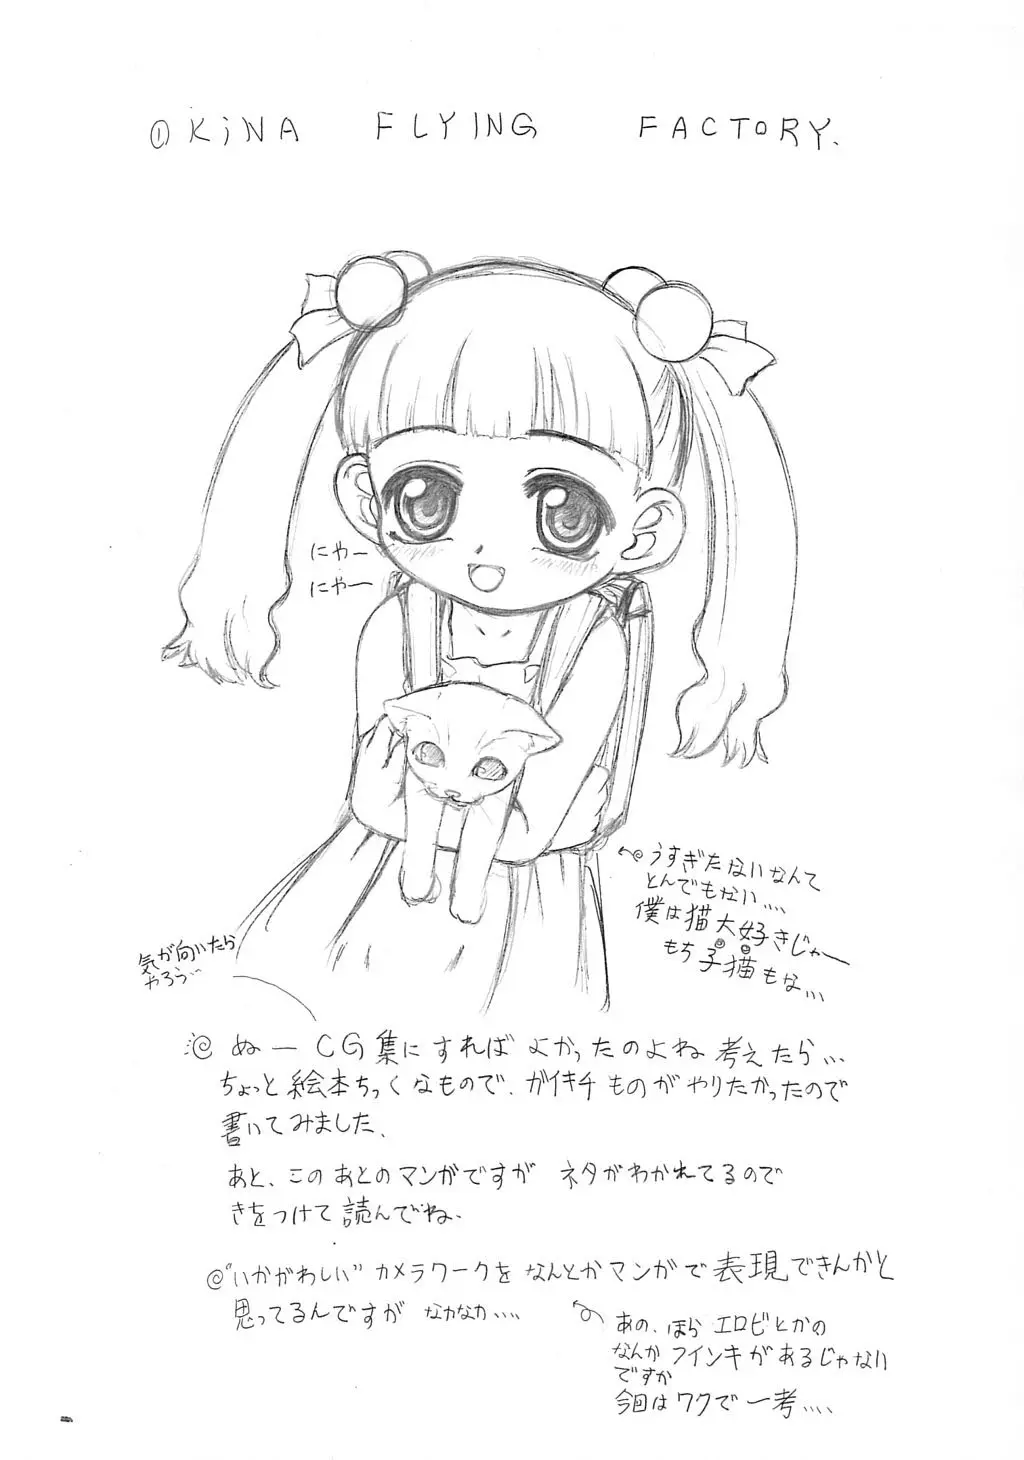 OKiNA FLYING FACTORY.
にゃー
にゃー
うすぎたないなんて
とんでもない....
僕は猫大好きじゃー
もち子猫もな...
気が向いたら
やろう...
@ ぬー CG集にすればよかったのよね 考えたら...
ちょっと絵本ちっくなもので、ガイキチものがやりたかったので
書いてみました、
あと、このあとのマンガですが ネタがわかれてるので
きをつけて読んでね、
@"いかがわしい" カメラワークを なんとかマンガで表現できんかと
思ってるんですが なかなか....
あの、ほら エロビとかの
なんか フインキがあるじゃない
ですか
今回はワクで一考....